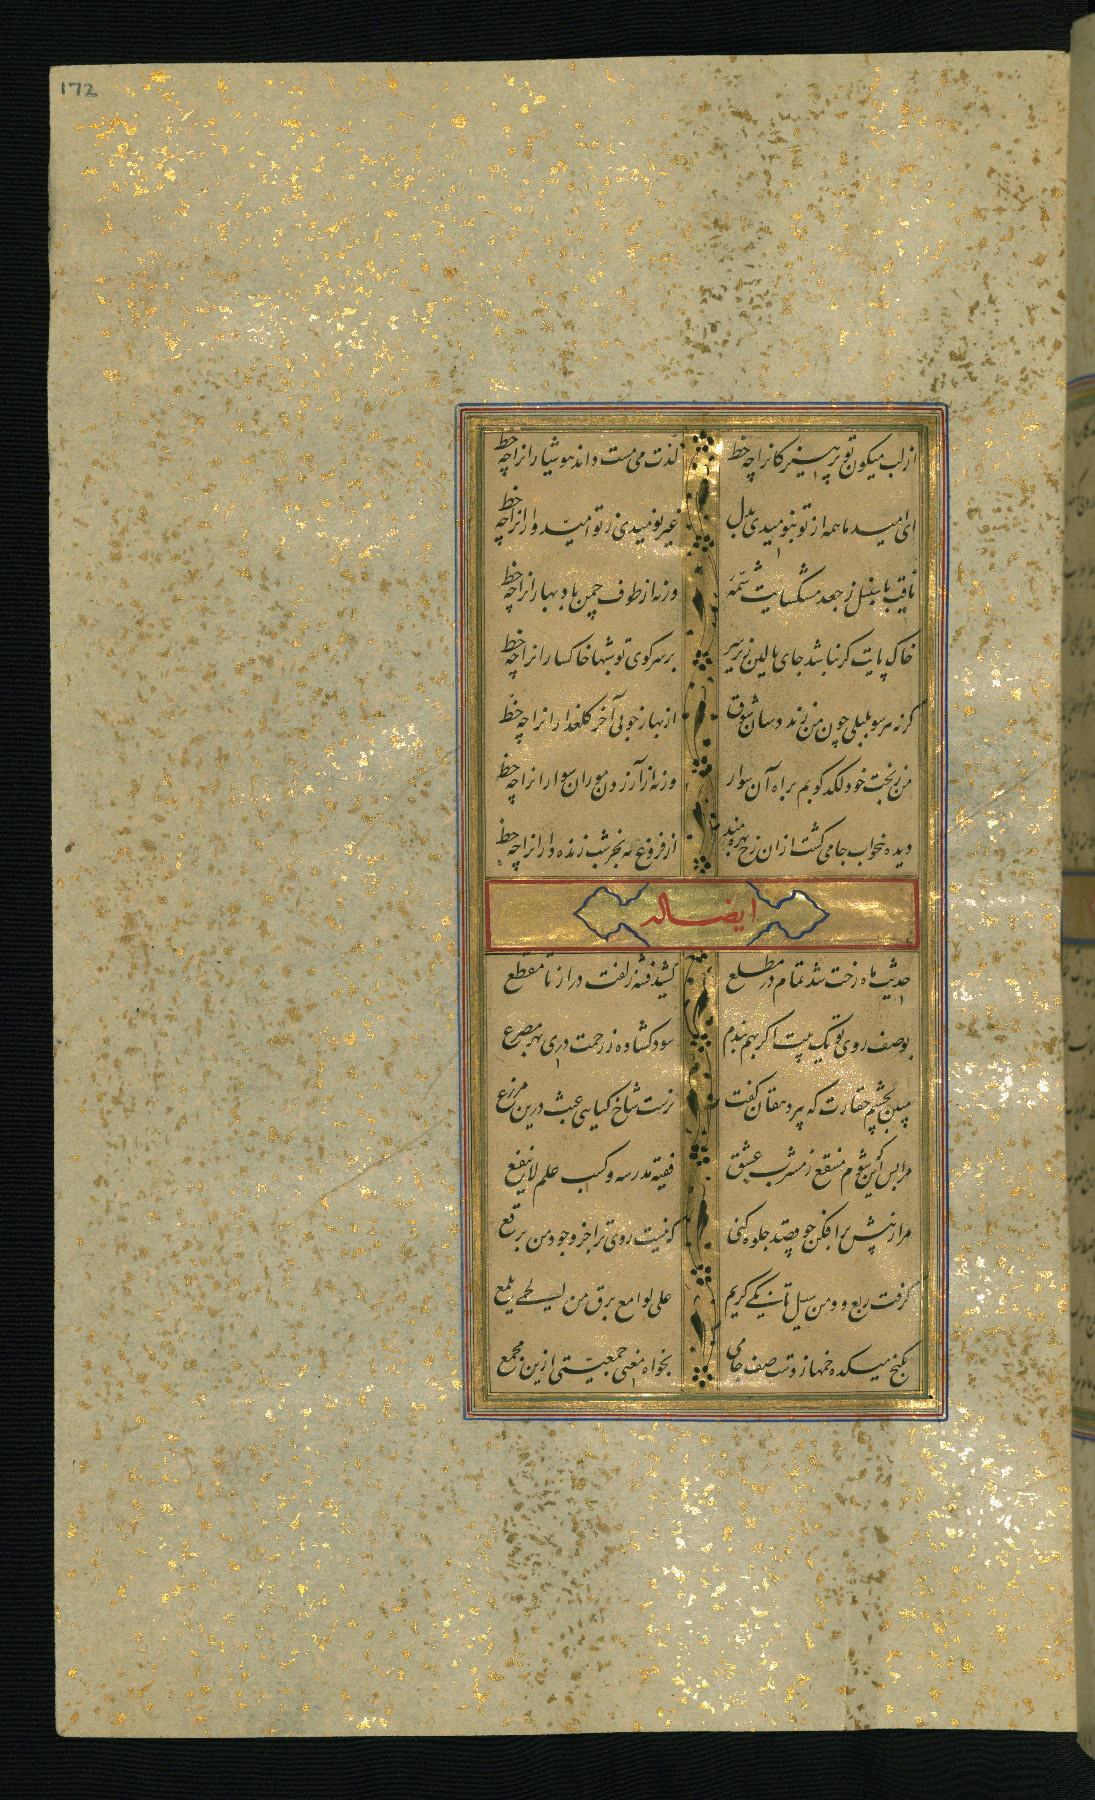 172
از لب میکون تو پرهیزکانرا چه خط لذت می مست داند هوشیارانرا چه خط
ای امید ما همه از تو بنومیدی بدل غیر نومیدی ز تو امیدوارانرا چه خط
نافت با سنبل ز جعد مشکسایت شمهٔ ورنه از طوف چمن باد بهارانرا چه خط
خاک پایت کر نباشد جای بالین زیر سر بر سر کوی تو شبها خاکسارانرا چه خط
کرنه هر سو بلبلی چون من زند دستان شوق از بهار خوبی آخر کلعذارانرا چه خط
من ز بخت خود لکدکوبم براه آن سوار ورنه از آزردن موران سوارانرا چه خط
دیده بخواب جامی کشت ازان رخ بهره مند از فروغ مه بجز شب زنده دارانرا چه خط
ایضا له
حدیث ماه رخت شد تمام در مطلع کشید قصه زلفت دراز تا مقطع
بوصف روی تو یک بیت اکر بهم بندم سود کشاده ز رحمت دری بهر مصرع
مبین بچشم حقارت که پیر دهقان کفت نرست شاخ کیاهی عبث درین مزرع
مرا بس این که شوم منتفع ز مشرب عشق فقیه مدرسه و کسب علم لا ینفع
مرا ز پیش برافکن چو قصد جلوه کنی که نیست روی ترا جز وجود من برقع
کرفت ربع و دمن سیل تا بکی کریم علی لوامع برق من لیلی یلمع
بکنج میکده خمها ز دست صف جامی بخواه معنی جمعیتی ازین مجمع